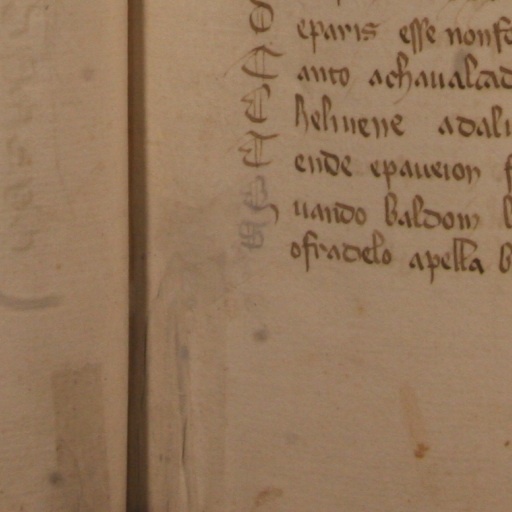 D eparis esse nonfo
C anto achaualcad
C Heluiene adali
C ende epaueion f
Q uando baldom b
S ofradelo apella B